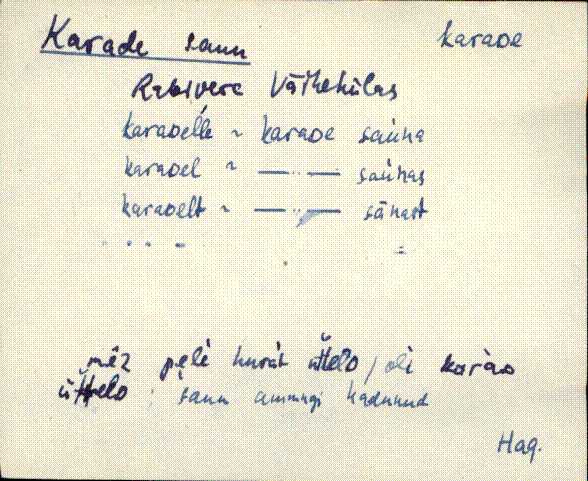 Karade saun karaoe
Rabivere Väikekülas
karaoelle ~ karaoe sauna
karaoel ~ —〃— saunas
karaoelt ~ —〃— sänast
mēz pęlè kuràt üttelo / oli karào
üttelo : saun ammugi kadunud
Hag.